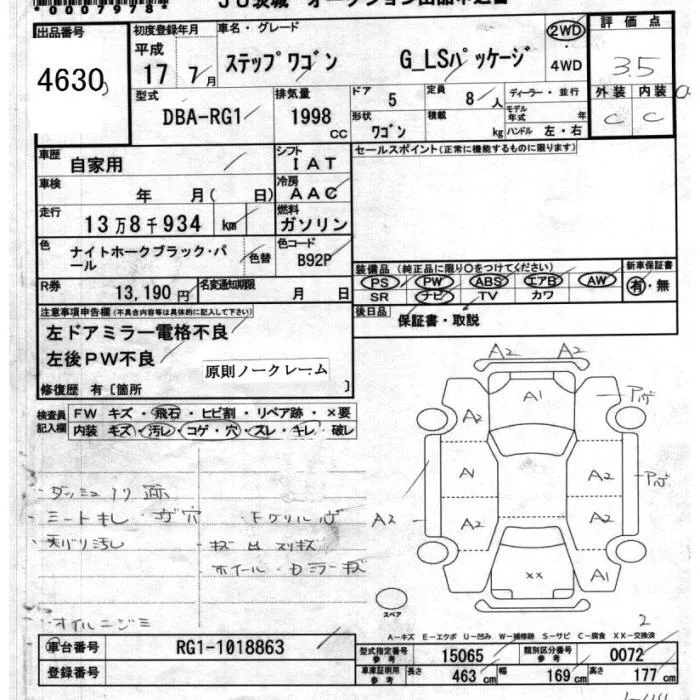 *0007978*
JU茨城 オークション出品申込書
出品番号
4630
初度登録年月
平成
17 7月
車名・グレード
ステップワゴン G_LSパッケージ
2WD
4WD
評価点
3.5
外装 内装
C C
型式
DBA-RG1
排気量
1998
cc
ドア
5
形状
ワゴン
定員
8人
積載
kg
ディーラー・並行
モデル年式 年
ハンドル 左・右
車歴
自家用
シフト
IAT
車検
年 月( 日)
冷房
AAC
走行
13万8千934 km
燃料
ガソリン
色
ナイトホークブラック・パール
色替
色コード
B92P
R券
13,190円
名変通知期限
月 日
セールスポイント(正常に機能するものに限ります)
装備品(純正品に限り○をつけてください)
PS PW ABS エアB AW
SR ナビ TV カワ
新車保証書
有・無
後日品
保証書・取説
注意事項申告欄(不具合内容等は具体的に記入して下さい)
左ドアミラー電格不良
左後PW不良
原則ノークレーム
修復歴 有〔箇所 〕
検査員記入欄
FW キズ・飛石・ヒビ割・リペア跡・×要
内装 キズ・汚レ・コゲ・穴・スレ・キレ・破レ
シートキレ・コゲ穴
天バリ汚レ
オイルニジミ
A2 A2
A1
A2
A A2
A2 A2 A2
XX A1
スペア
2
A-キズ E-エクボ U-凹み W-補修跡 S-サビ C-腐食 XX-交換済
車台番号
RG1-1018863
登録番号
型式指定番号
参考
15065
類別区分番号
参考
0072
車庫証明用
参考
長さ 463cm 幅 169cm 高さ 177cm